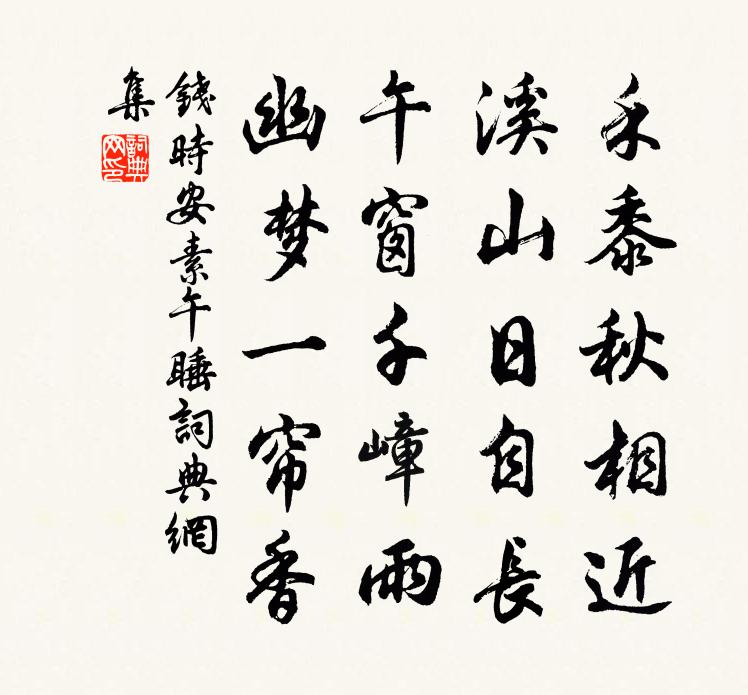 禾黍秋相近
溪山日自長
午窗千嶂雨
幽梦一帘香
錢時安素午睡詞典網
集
詞典网印